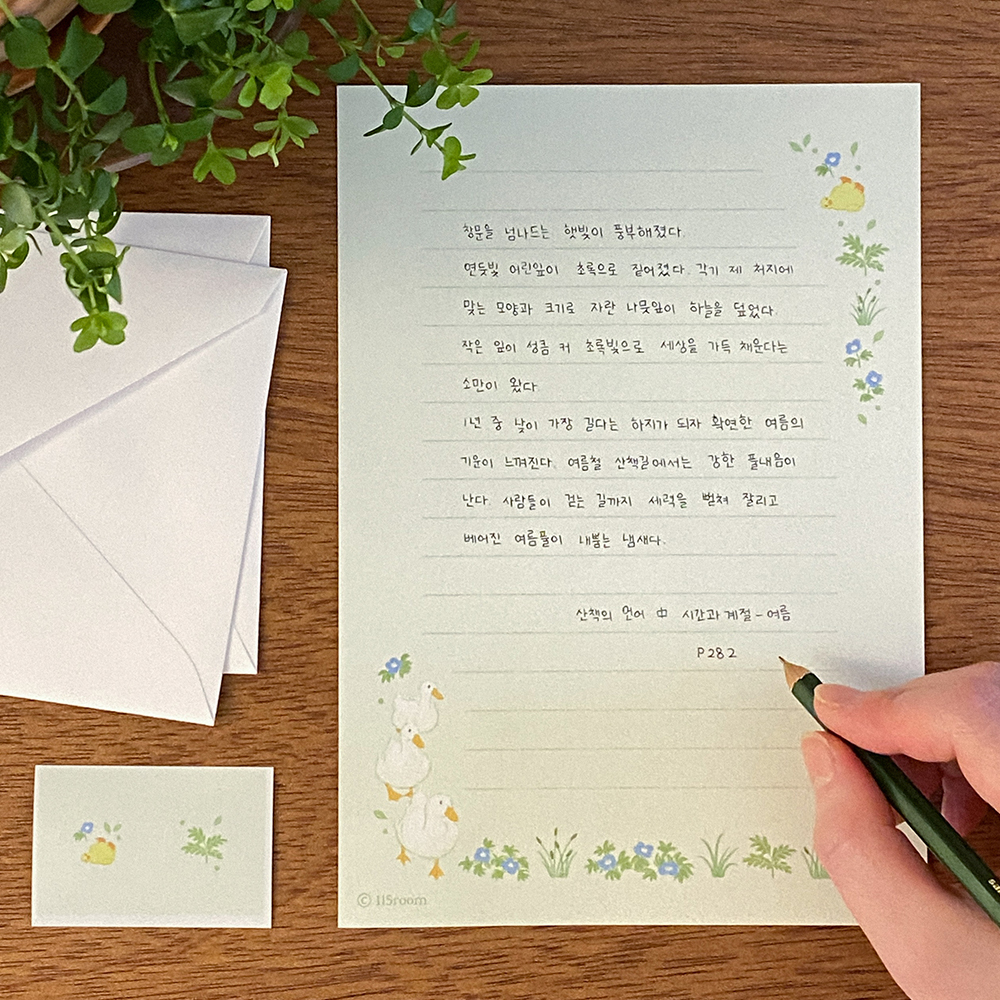 창문을 넘나드는 햇빛이 풍부해졌다.
연둣빛 어린잎이 초록으로 짙어졌다. 각기 제 처지에
맞는 모양과 크기로 자란 나뭇잎이 하늘을 덮었다.
작은 잎이 성큼 커 초록빛으로 세상을 가득 채운다는
소만이 왔다.
1년 중 낮이 가장 길다는 하지가 되자 확연한 여름의
기운이 느껴진다. 여름철 산책길에서는 강한 풀내음이
난다. 사람들이 걷는 길까지 세력을 뻗쳐 잘리고
베어진 여름풀이 내뿜는 냄새다.
산책의 언어 中 시간과 계절 - 여름
P282
© 115room